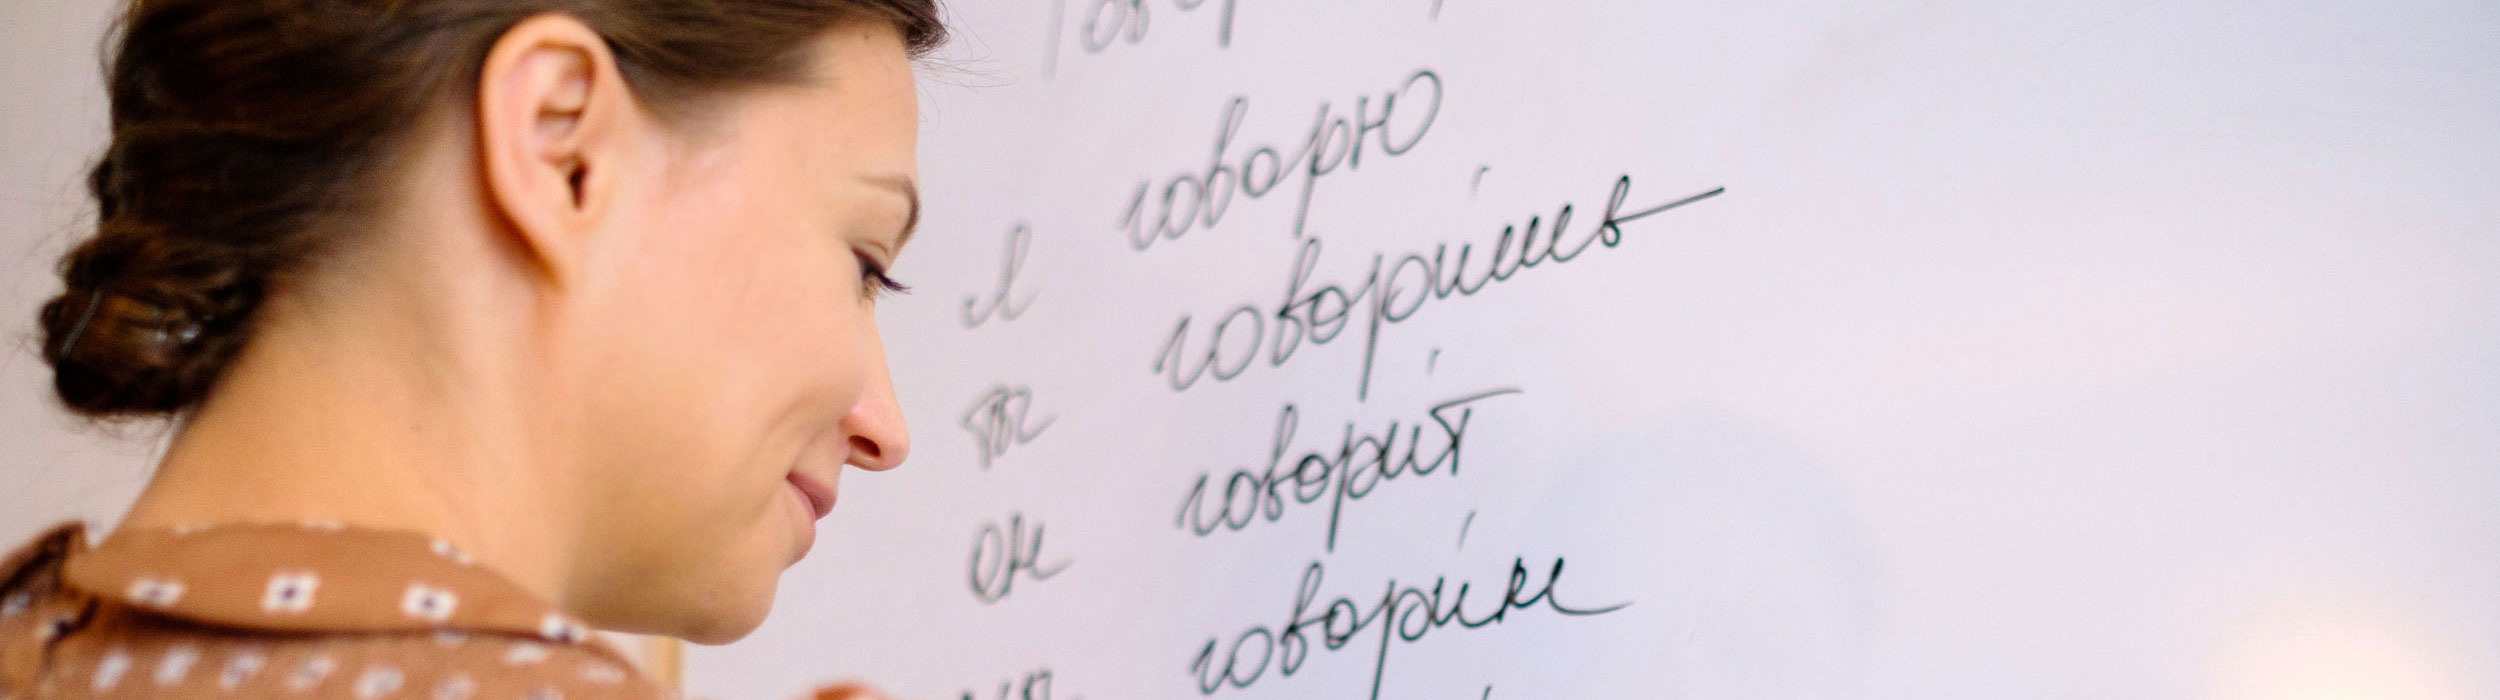 я говорю́
ты говори́шь
он говори́т
мы говори́м